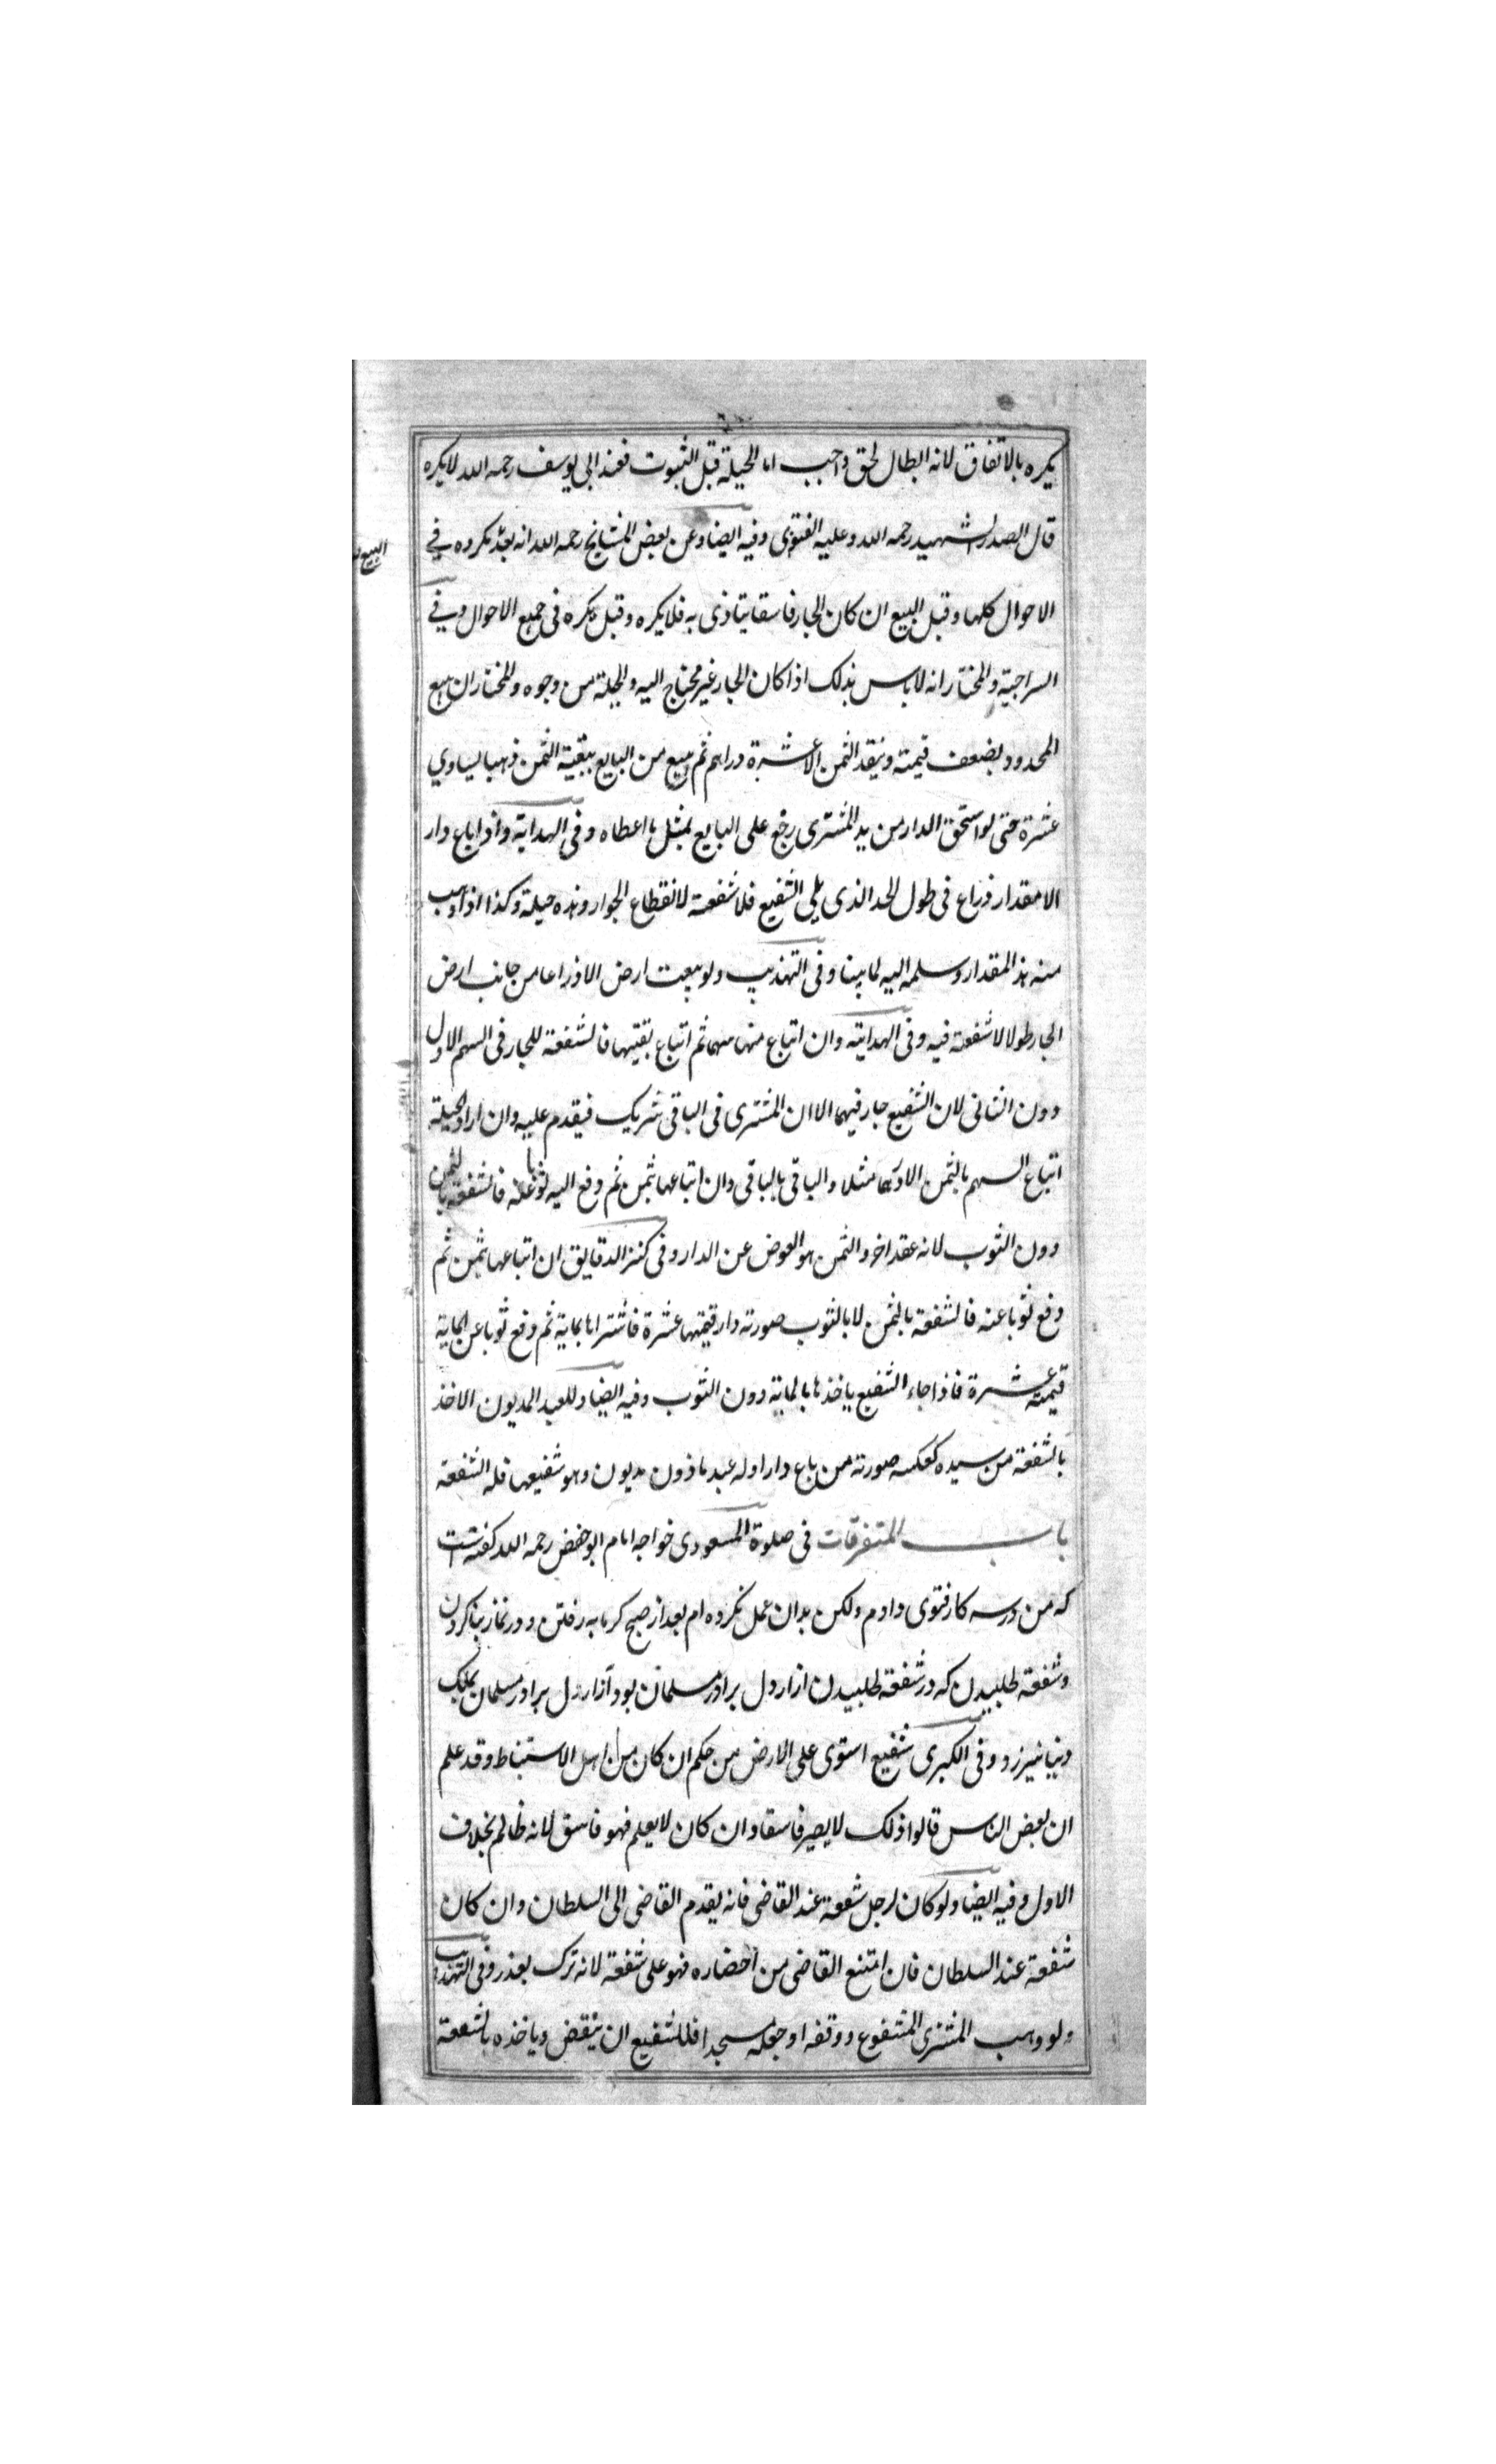 يكره بالاتفاق لانه ابطال لحق واجب اما الحيلة قبل الثبوت فعند ابى يوسف رحمه الله لا يكره
قال الصدر الشهيد رحمه الله وعليه الفتوى وفيه ايضا وعن بعض المشايخ رحمه الله انه بعد مكروه في
البيع
الاحوال كلها وقبل البيع ان كان الجار فاسقا يتاذى به فلا يكره وقيل يكره فى جميع الاحوال وفي
السراجية والمختار انه لا باس بذلك اذا كان الجار غير محتاج اليه والحيلة من وجوه والمختار ان يبيع
المحدود بضعف قيمته وينقد الثمن الا عشرة دراهم ثم يبيع من البايع ببقية الثمن ذهبا يساوي
عشرة حتى لو استحق الدار من يد المشترى رجع على البايع بمثل ما اعطاه وفى الهداية واذا باع دار
الا مقدار ذراع فى طول الحد الذى يلى الشفيع فلا شفعة لانقطاع الجوار وهذه حيلة وكذا اذا وهب
منه هذ المقدار وسلمه اليه لما بينا وفى التهذيب ولو بيعت ارض الا ذراعا من جانب ارض
الجار طولا لا شفعة فيه وفى الهداية وان ابتاع منها سهما ثم ابتاع بقيتها فالشفعة للجار فى السهم الاول
دون الثانى لان الشفيع جار فيهما الا ان المشترى فى الباقى شريك فيقدم عليه وان اراد الحيلة
ابتاع السهم بالثمن الا درهما مثلا والباقى بالباقى وان ابتاعها بثمن ثم دفع اليه ثوبا عنه فالشفعة بالثمن
دون الثوب لانه عقد اخر والثمن هو العوض عن الدار وفى كنز الدقايق ان ابتاعها بثمن ثم
دفع ثوبا عنه فالشفعة بالثمن لا بالثوب صورته دار قيمتها عشرة فاشتراها بماية ثم دفع ثوبا عن الماية
قيمته عشرة فاذا جاء الشفيع ياخذها بالماية دون الثوب وفيه ايضا وللعبد المديون الاخذ
بالشفعة من سيده كعكسه صورته من باع دارا وله عبد ماذون مديون وهو شفيعها فله الشفعة
باب المتفرقات فى صلوة المسعودى خواجه امام ابو حفص رحمه الله گفته است
كه من در سه كار فتوى دادم ولكن بدان عمل نكرده ام بعد از صبح گرمابه رفتن و در نماز بنا كردن
و شفعة طلبيدن كه در شفعة طلبيدن ازار دل برادر مسلمان بود و آزار دل برادر مسلمان بملك
دنيا نيرزد وفى الكبرى شفيع استوى على الارض من حكم ان كان من اهل الاستنباط وقد علم
ان بعض الناس قالوا ذلك لا يصير فاسقا وان كان لا يعلم فهو فاسق لانه ظالم بخلاف
الاول وفيه ايضا ولو كان لرجل شفعة عند القاضى فانه يقدم القاضى الى السلطان وان كان
شفعة عند السلطان فان امتنع القاضى من احضاره فهو على شفعة لانه ترك بعذر وفى التهذيب
ولو وهب المشترى المشفوع ووقفه او جعله مسجدا فللشفيع ان ينقض وياخذه بالشفعة